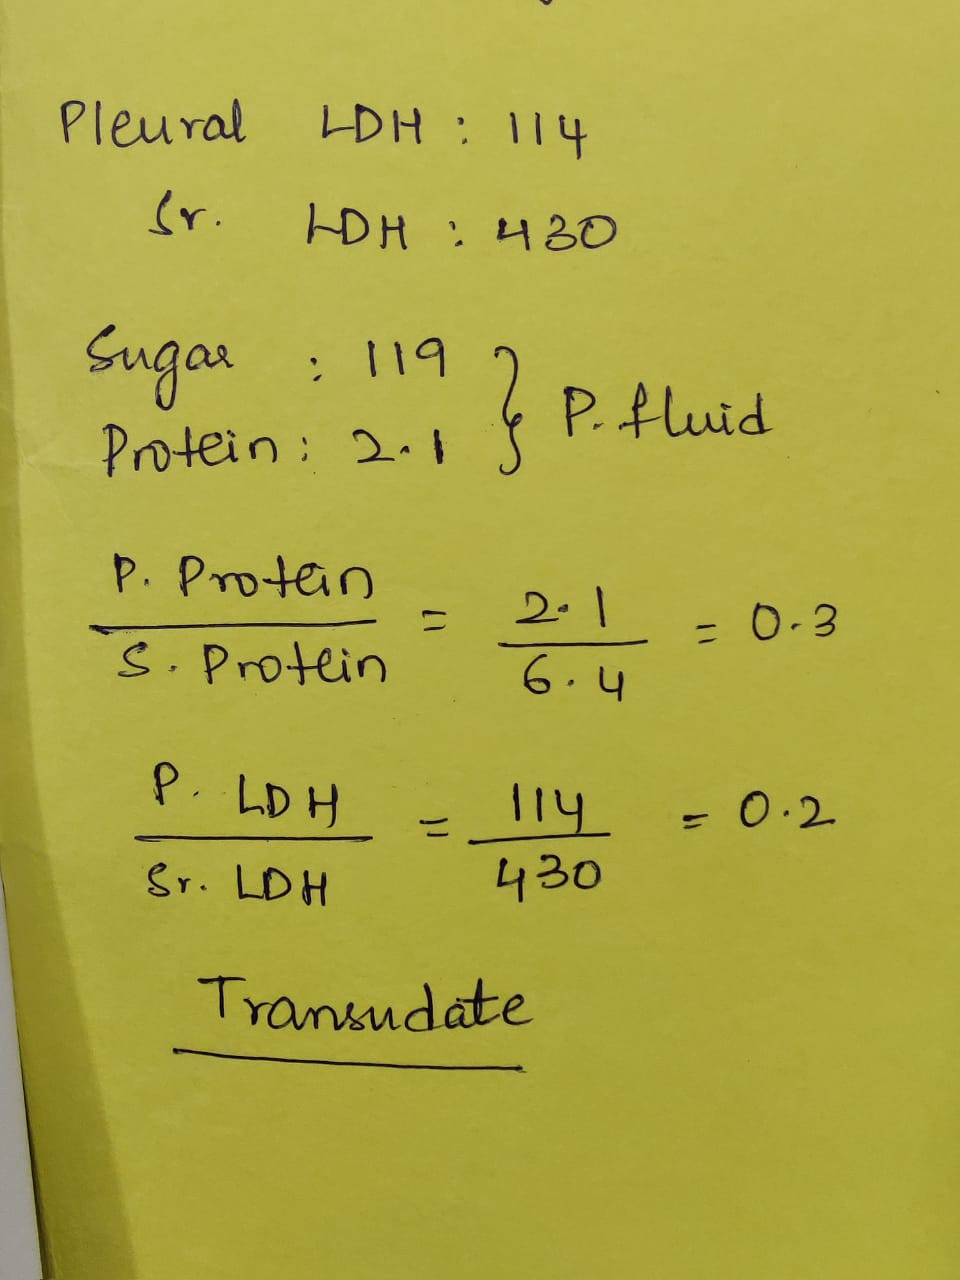 Pleural LDH : 114
Sr. LDH : 430
Sugar : 119
Protein : 2.1 } P. fluid
P. Protein / S. Protein = 2.1 / 6.4 = 0.3
P. LDH / Sr. LDH = 114 / 430 = 0.2
Transudate